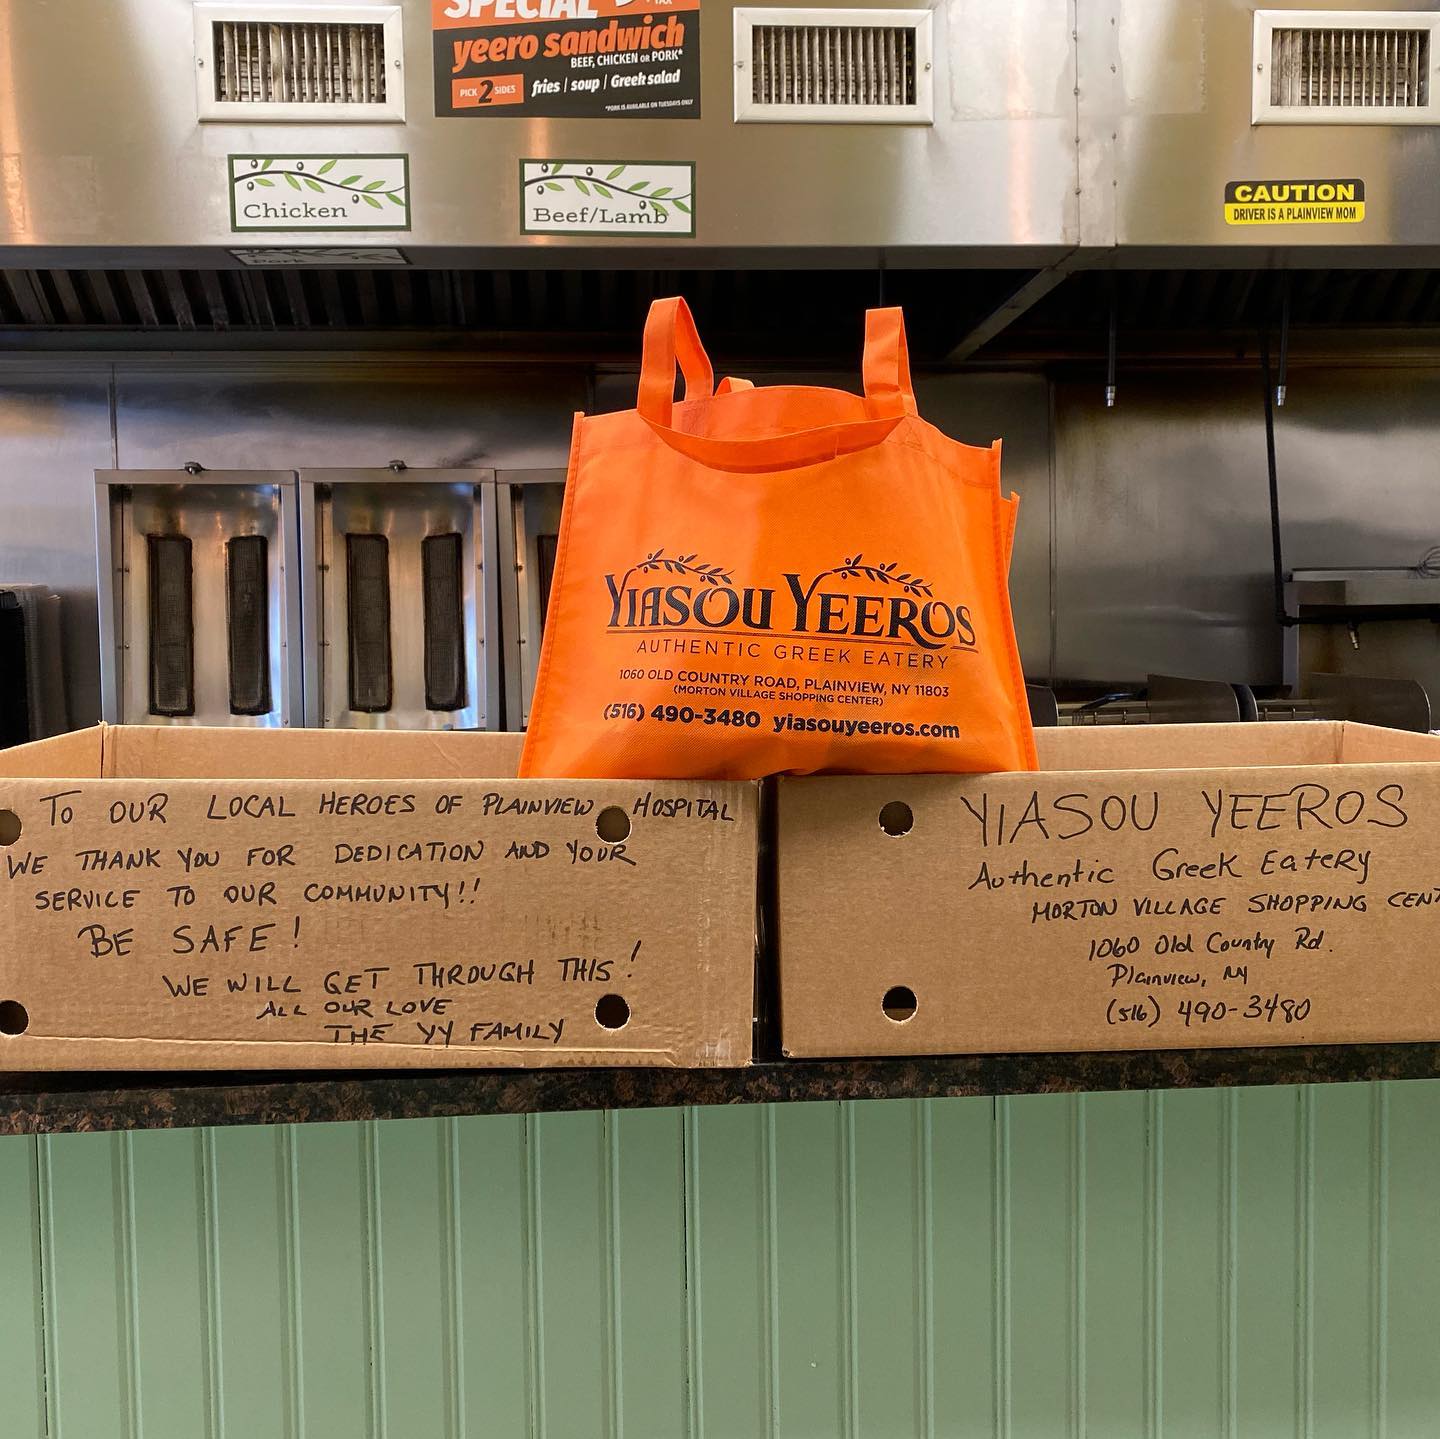 SPECIAL
TAX
yeero sandwich
BEEF, CHICKEN OR PORK*
PICK 2 SIDES
fries | soup | Greek salad
*PORK IS AVAILABLE ON TUESDAYS ONLY
Chicken
Beef/Lamb
Pork
CAUTION
DRIVER IS A PLAINVIEW MOM
YIASOU YEEROS
AUTHENTIC GREEK EATERY
1060 OLD COUNTRY ROAD, PLAINVIEW, NY 11803
(MORTON VILLAGE SHOPPING CENTER)
(516) 490-3480 yiasouyeeros.com
TO OUR LOCAL HEROES OF PLAINVIEW HOSPITAL
WE THANK YOU FOR DEDICATION AND YOUR
SERVICE TO OUR COMMUNITY!!
BE SAFE!
WE WILL GET THROUGH THIS!
ALL OUR LOVE
THE YY FAMILY
YIASOU YEEROS
Authentic Greek Eatery
MORTON VILLAGE SHOPPING CENT
1060 Old Country Rd.
Plainview, NY
(516) 490-3480